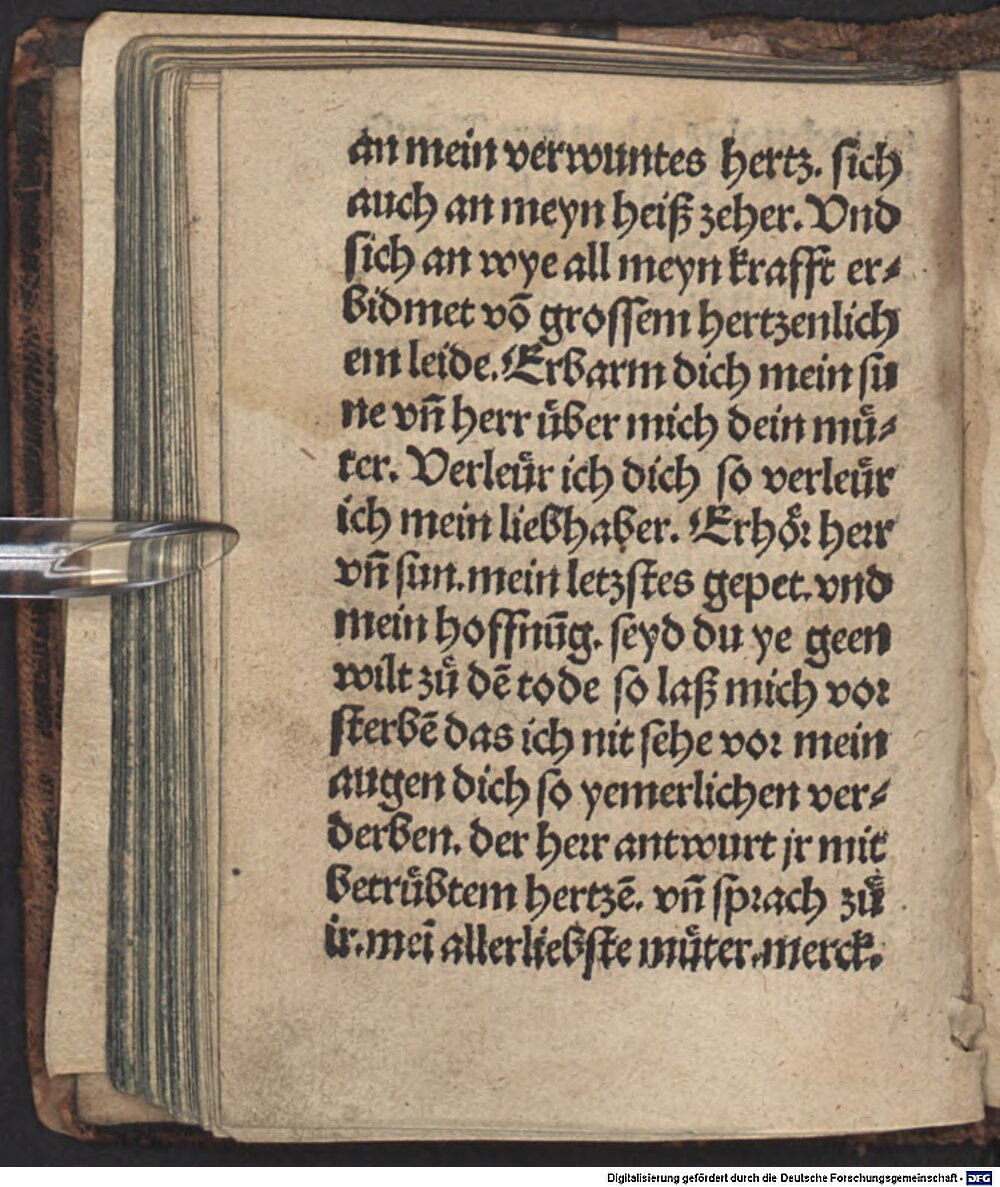 an mein verwuntes hertz. sich
auch an meyn heiß zeher. Vnd
sich an wye all meyn krafft er⸗
bidmet vō grossem hertzenlich
em leide. Erbarm dich mein su
ne vñ herr über mich dein mů⸗
ter. Verleür ich dich so verleür
ich mein liebhaber. Erhör herr
vñ sun. mein letzstes gepet. vnd
mein hoffnūg. seyd du ye geen
wilt zů dē tode so laß mich vor
sterbē das ich nit sehe vor mein
augen dich so yemerlichen ver⸗
derben. der herr antwurt jr mit
betrübtem hertzē. vñ sprach zů
ir. mei allerliebste můter. merck.
Digitalisierung gefördert durch die Deutsche Forschungsgemeinschaft - DFG